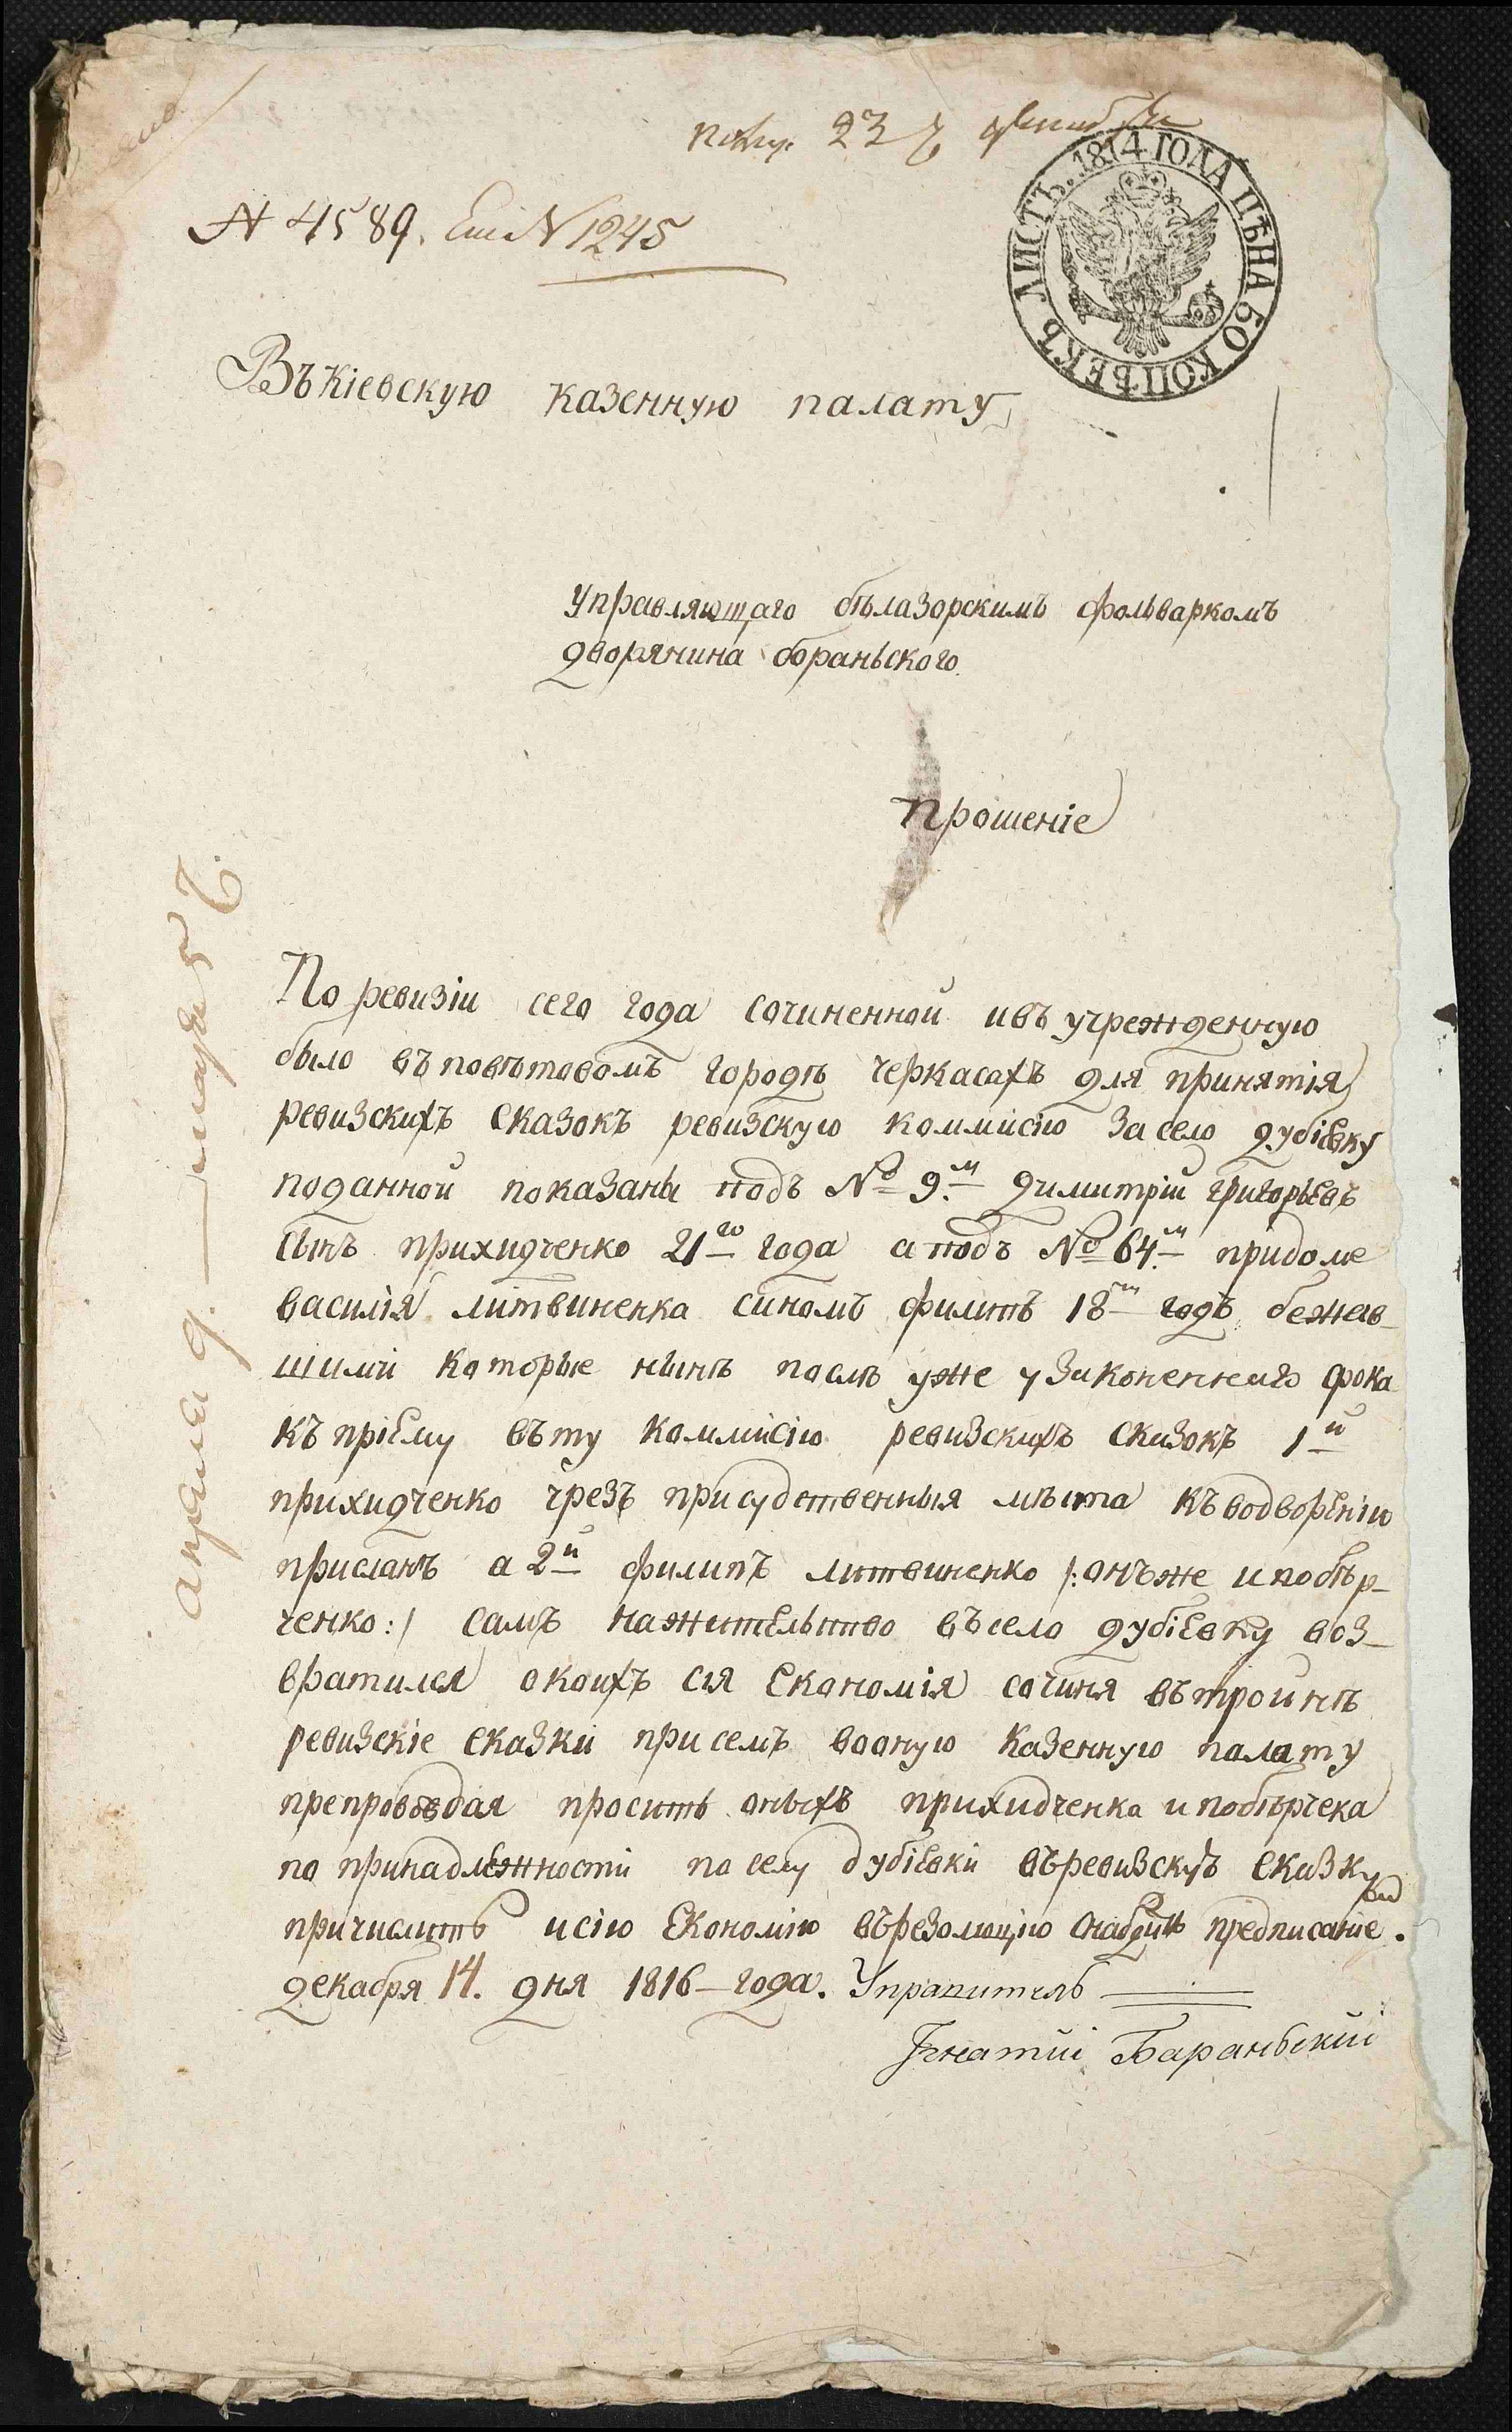 получ. 23 декабря
№ 4589. Ем №1245
ЛИСТЪ. 1814 ГОДА ЦѢНА 50 КОПѢЕКЪ
Въ Кіевскую казенную палату
Управляющаго бѣлазорскимъ фольваркомъ
дворянина бораньского.
прошеніе
По ревизіи сего года сочиненной ивъ учрежденную
было въ повѣтовомъ городѣ Черкасахъ для принятія
ревизскихъ сказокъ ревизскую коммисію за село дубіевку
поданной показаны подъ № 9.м димитрій григорьевъ
сынъ прихидченко 21го года а подъ № 64.м придоме
василія литвиненка синомъ филипъ 18м годъ бежав-
шими которые нынѣ послѣ уже узаконеннаго срока
къ пріему въ ту коммисію ревизскихъ сказокъ 1й
прихидченко чрезъ присудственныя мѣста къ водворенію
присланъ а 2й филипъ литвиненко /: онъже и побѣр-
ченко:/ самъ нажительство въ село дубіевку воз-
вратился окоихъ сія економія сочиня въ тройнѣ
ревизскіе сказки при семъ вооную казенную палату
препровождая проситъ оныхъ прихидченка и побѣрчека
по принадлежности по селу дубіевки въ ревизскую сказку
причислить и сію економію въ резолюцію снабдить предписаніемъ.
декабря 14. дня 1816-года. Управитель
Игнатій Бараньский
апреля 9. маія 5 Ч.